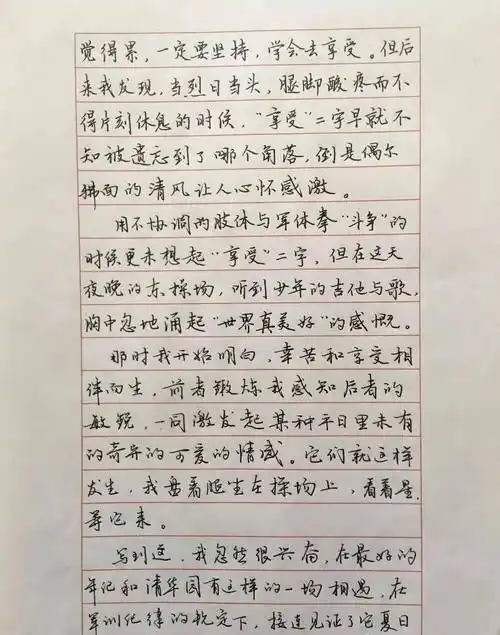 觉得累，一定要坚持，学会去享受。但后
来我发现，当烈日当头，腿脚酸疼而不
得片刻休息的时候，“享受”二字早就不
知被遗忘到了哪个角落，倒是偶尔
拂面的清风让人心怀感激。
用不协调的肢体与军体拳“斗争”的
时候更未想起“享受”二字，但在这天
夜晚的东操场，听到少年的吉他与歌，
胸中忽地涌起“世界真美好”的感慨。
那时我开始明白，辛苦和享受相
伴而生，前者锻炼我感知后者的
敏锐，一同激发起某种平日里未有
的奇异的可爱的情感。它们就这样
发生，我盘着腿坐在操场上，看着星
等它来。
写到这，我忽然很兴奋，在最好的
年纪和清华园有这样的一场相遇，在
军训纪律的规定下，接连见证了它夏日